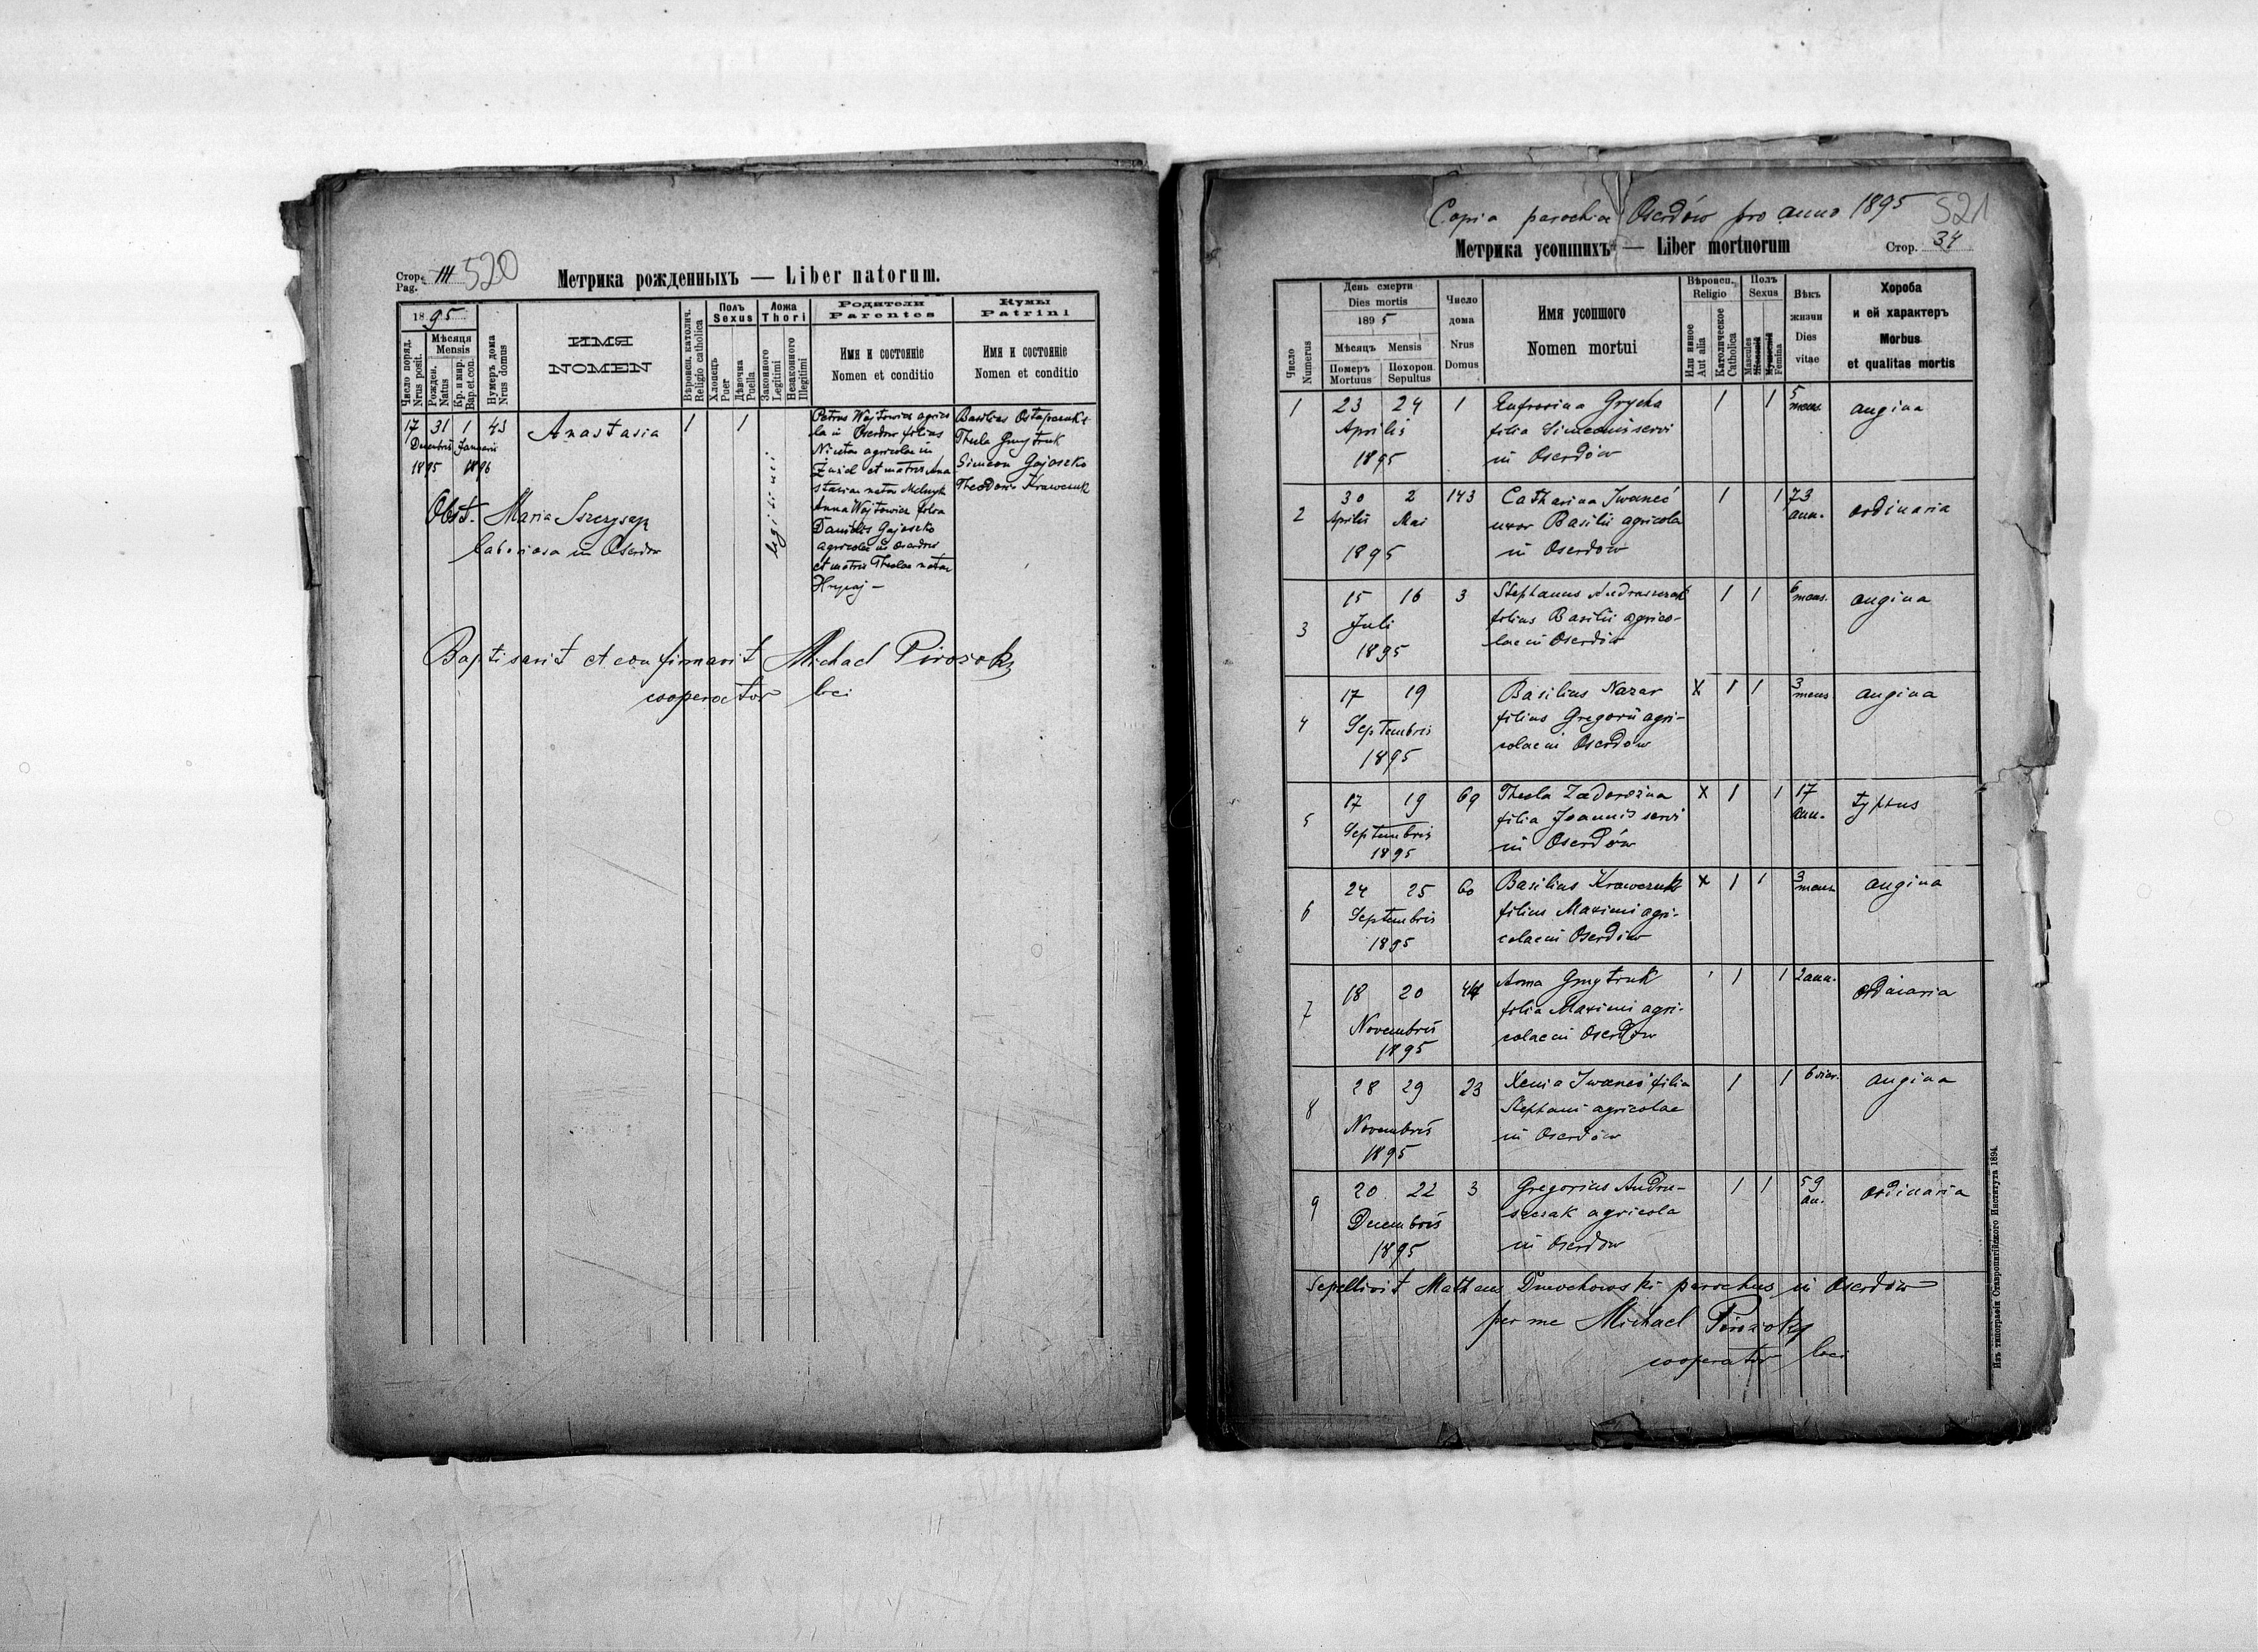 Стор. Pag. III 520
Метрика рожденныхъ — Liber natorum.
1895
Число поряд. Nrus posit.
Мѣсяця Mensis
Рожден. Natus
Кр. и мир. Bap. et. con.
Нумеръ дома Nrus domus
ИМЯ
NOMEN
Вѣроисп. католич. Religio catholica
Полъ Sexus
Хлопець Puer
Дѣвочка Puella
Ложа Thori
Законного Legitimi
Незаконного Illegitimi
Родители Parentes
Имя и состояніе
Nomen et conditio
Кумы Patrini
Имя и состояніе
Nomen et conditio
17 31 1 43 Anastasia 1 1
Decembris Januarii
1895 1896
legitimi
Petrus Wojtowicz agrico
la in Oserdow filius
Nicetae agricolae in
et matris Ana
stasiae natae Melnyk
Anna Wojtowicz filia
Danielis Gajoszko
agricolae in Oserdow
et matris Theclae natae
Hrycaj —
Basilius Ostapczuk
Thecla Gmytruk
Simeon Gajoszko
Theodora Krawczuk
Obst. Maria
laboriosa in Oserdow
Baptisavit et confirmavit Michael
cooperator loci
Copia parochiae Oserdów pro anno 1895 521
Метрика усопшихъ — Liber mortuorum
Стор. 34
Число Numerus
День смерти
Dies mortis
1895
Мѣсяцъ Mensis
Померъ Mortuus
Похорон. Sepultus
Число дома
Nrus Domus
Имя усопшого
Nomen mortui
Вѣроисп. Religio
Или инное Aut alia
Католическое Catholica
Полъ Sexus
Mascules
Femina
Вѣкъ жизни
Dies vitae
Хороба
и ей характеръ
Morbus
et qualitas mortis
1 23 24 1 Eufrosina Grycha 1 1 5 mens. angina
Aprilis filia Simeonis servi
1895 in Oserdów
2 30 2 143 Catharina Iwaneć 1 1 73 ann. ordinaria
Aprilis Mai uxor Basilii agricola
1895 in Oserdow
3 15 16 3 Stephanus Andruszczak 1 1 6 mens. angina
Juli filius Basilii agrico-
1895 lae in Oserdów
4 17 19 Basilius Nazar X 1 1 3 mens angina
Septembris filius Gregorii agri-
1895 colae in Oserdów
5 17 19 69 Thecla Zadorożna X 1 1 17 ann. typhus
Septembris filia Joannis servi
1895 in Oserdów
6 24 25 60 Basilius Krawczuk X 1 1 3 mens angina
Septembris filius Maximi agri-
1895 colae in Oserdów
7 18 20 44 Anna Gmytruk 1 1 2 ann. ordinaria
Novembris filia Maximi agri-
1895 colae in Oserdów
8 28 29 23 Xenia Iwaneć filia 1 1 6 angina
Novembris Stephani agricolae
1895 in Oserdów
9 20 22 3 Gregorius Andru- 1 1 59 an. ordinaria
Decembris szczak agricola
1895 in Oserdow
Sepellivit Matheus Dmochowski parochus in Oserdów
per me Michael
cooperator loci
Изъ типографіи Ставропигійского Института 1894